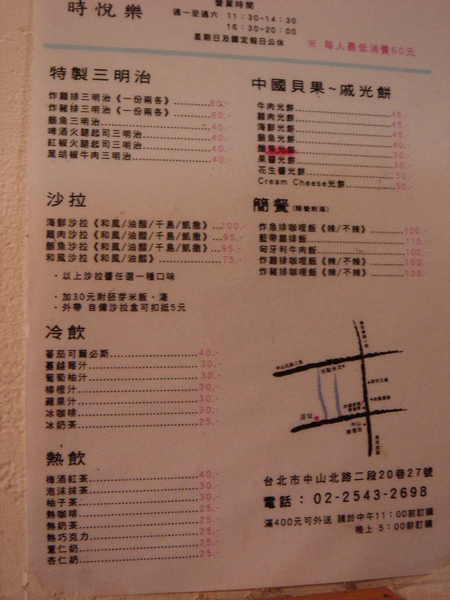 營業時間
時悅樂
週一至週六 11:30-14:30
16:30-20:00
星期日及國定假日公休
※ 每人最低消費60元
特製三明治
炸雞排三明治《一份兩各》 80.-
炸豬排三明治《一份兩各》 80.-
鮪魚三明治 40.-
啤酒火腿起司三明治 40.-
紅椒火腿起司三明治 40.-
黑胡椒牛肉三明治 40.-
中國貝果~戚光餅
牛肉光餅 45.-
雞肉光餅 45.-
海鮮光餅 45.-
光餅
果醬光餅 30.-
花生醬光餅 30.-
Cream Cheese光餅 30.-
沙拉
海鮮沙拉《和風/油醋/千島/凱撒》 100.-
雞肉沙拉《和風/油醋/千島/凱撒》 95.-
鮪魚沙拉《和風/油醋/千島/凱撒》 95.-
和風沙拉《和風/油醋》 75.-
·以上沙拉醬任選一種口味
·加30元附胚芽米飯、湯
·外帶 自備沙拉盒可扣抵5元
簡餐(簡餐附湯)
炸魚排咖哩飯《辣/不辣》 100.-
藍帶雞排飯 110.-
匈牙利牛肉飯 100.-
炸雞排咖哩飯《辣/不辣》 100.-
炸豬排咖哩飯《辣/不辣》 100.-
冷飲
蕃茄可爾必斯 40.-
蔓越莓汁 30.-
葡萄柚汁 30.-
柳橙汁 30.-
蘋果汁 30.-
冰咖啡 30.-
冰奶茶 25.-
熱飲
梅酒紅茶 40.-
泡沫抹茶 30.-
柚子茶 30.-
熱咖啡 25.-
熱奶茶 25.-
熱巧克力 25.-
薏仁奶 25.-
杏仁奶 25.-
中山北路二段
中山
台北市中山北路二段20巷27號
電話: 02-2543-2698
滿400元可外送 請於中午11:00前訂購
晚上 5:00前訂購